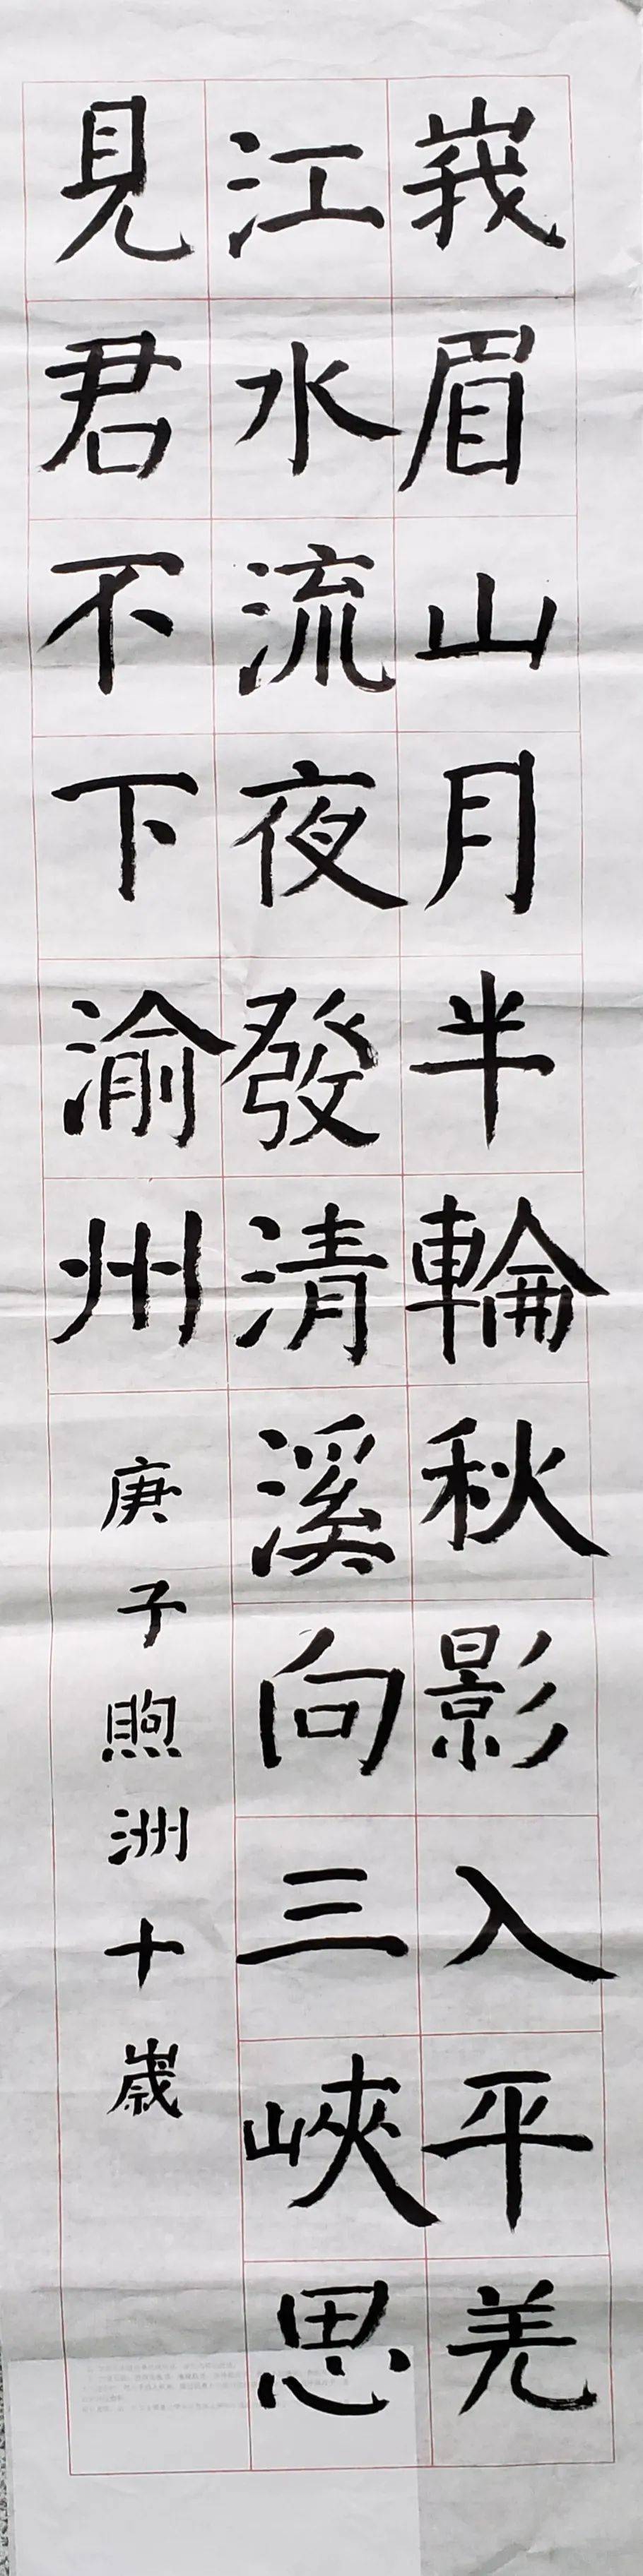 峩眉山月半輪秋影入平羌
江水流夜發清溪向三峽思
見君不下渝州
庚子煦洲十歲